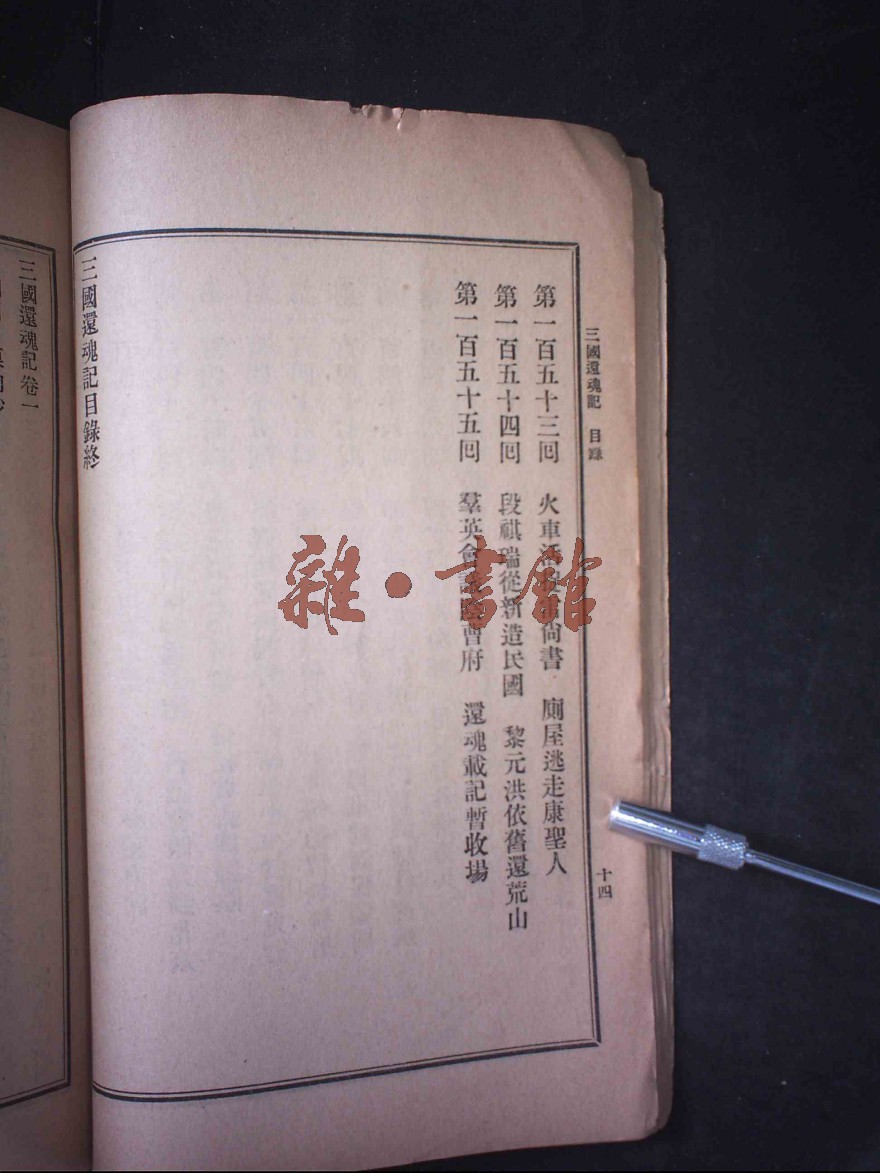 三國還魂記 目錄
十四
第一百五十三囘 火車活 尙書 廁屋逃走康聖人
第一百五十四囘 段祺瑞從新造民國 黎元洪依舊還荒山
第一百五十五囘 羣英會 曹府 還魂載記暫收場
三國還魂記目錄終
三國還魂記卷一
雜·書館